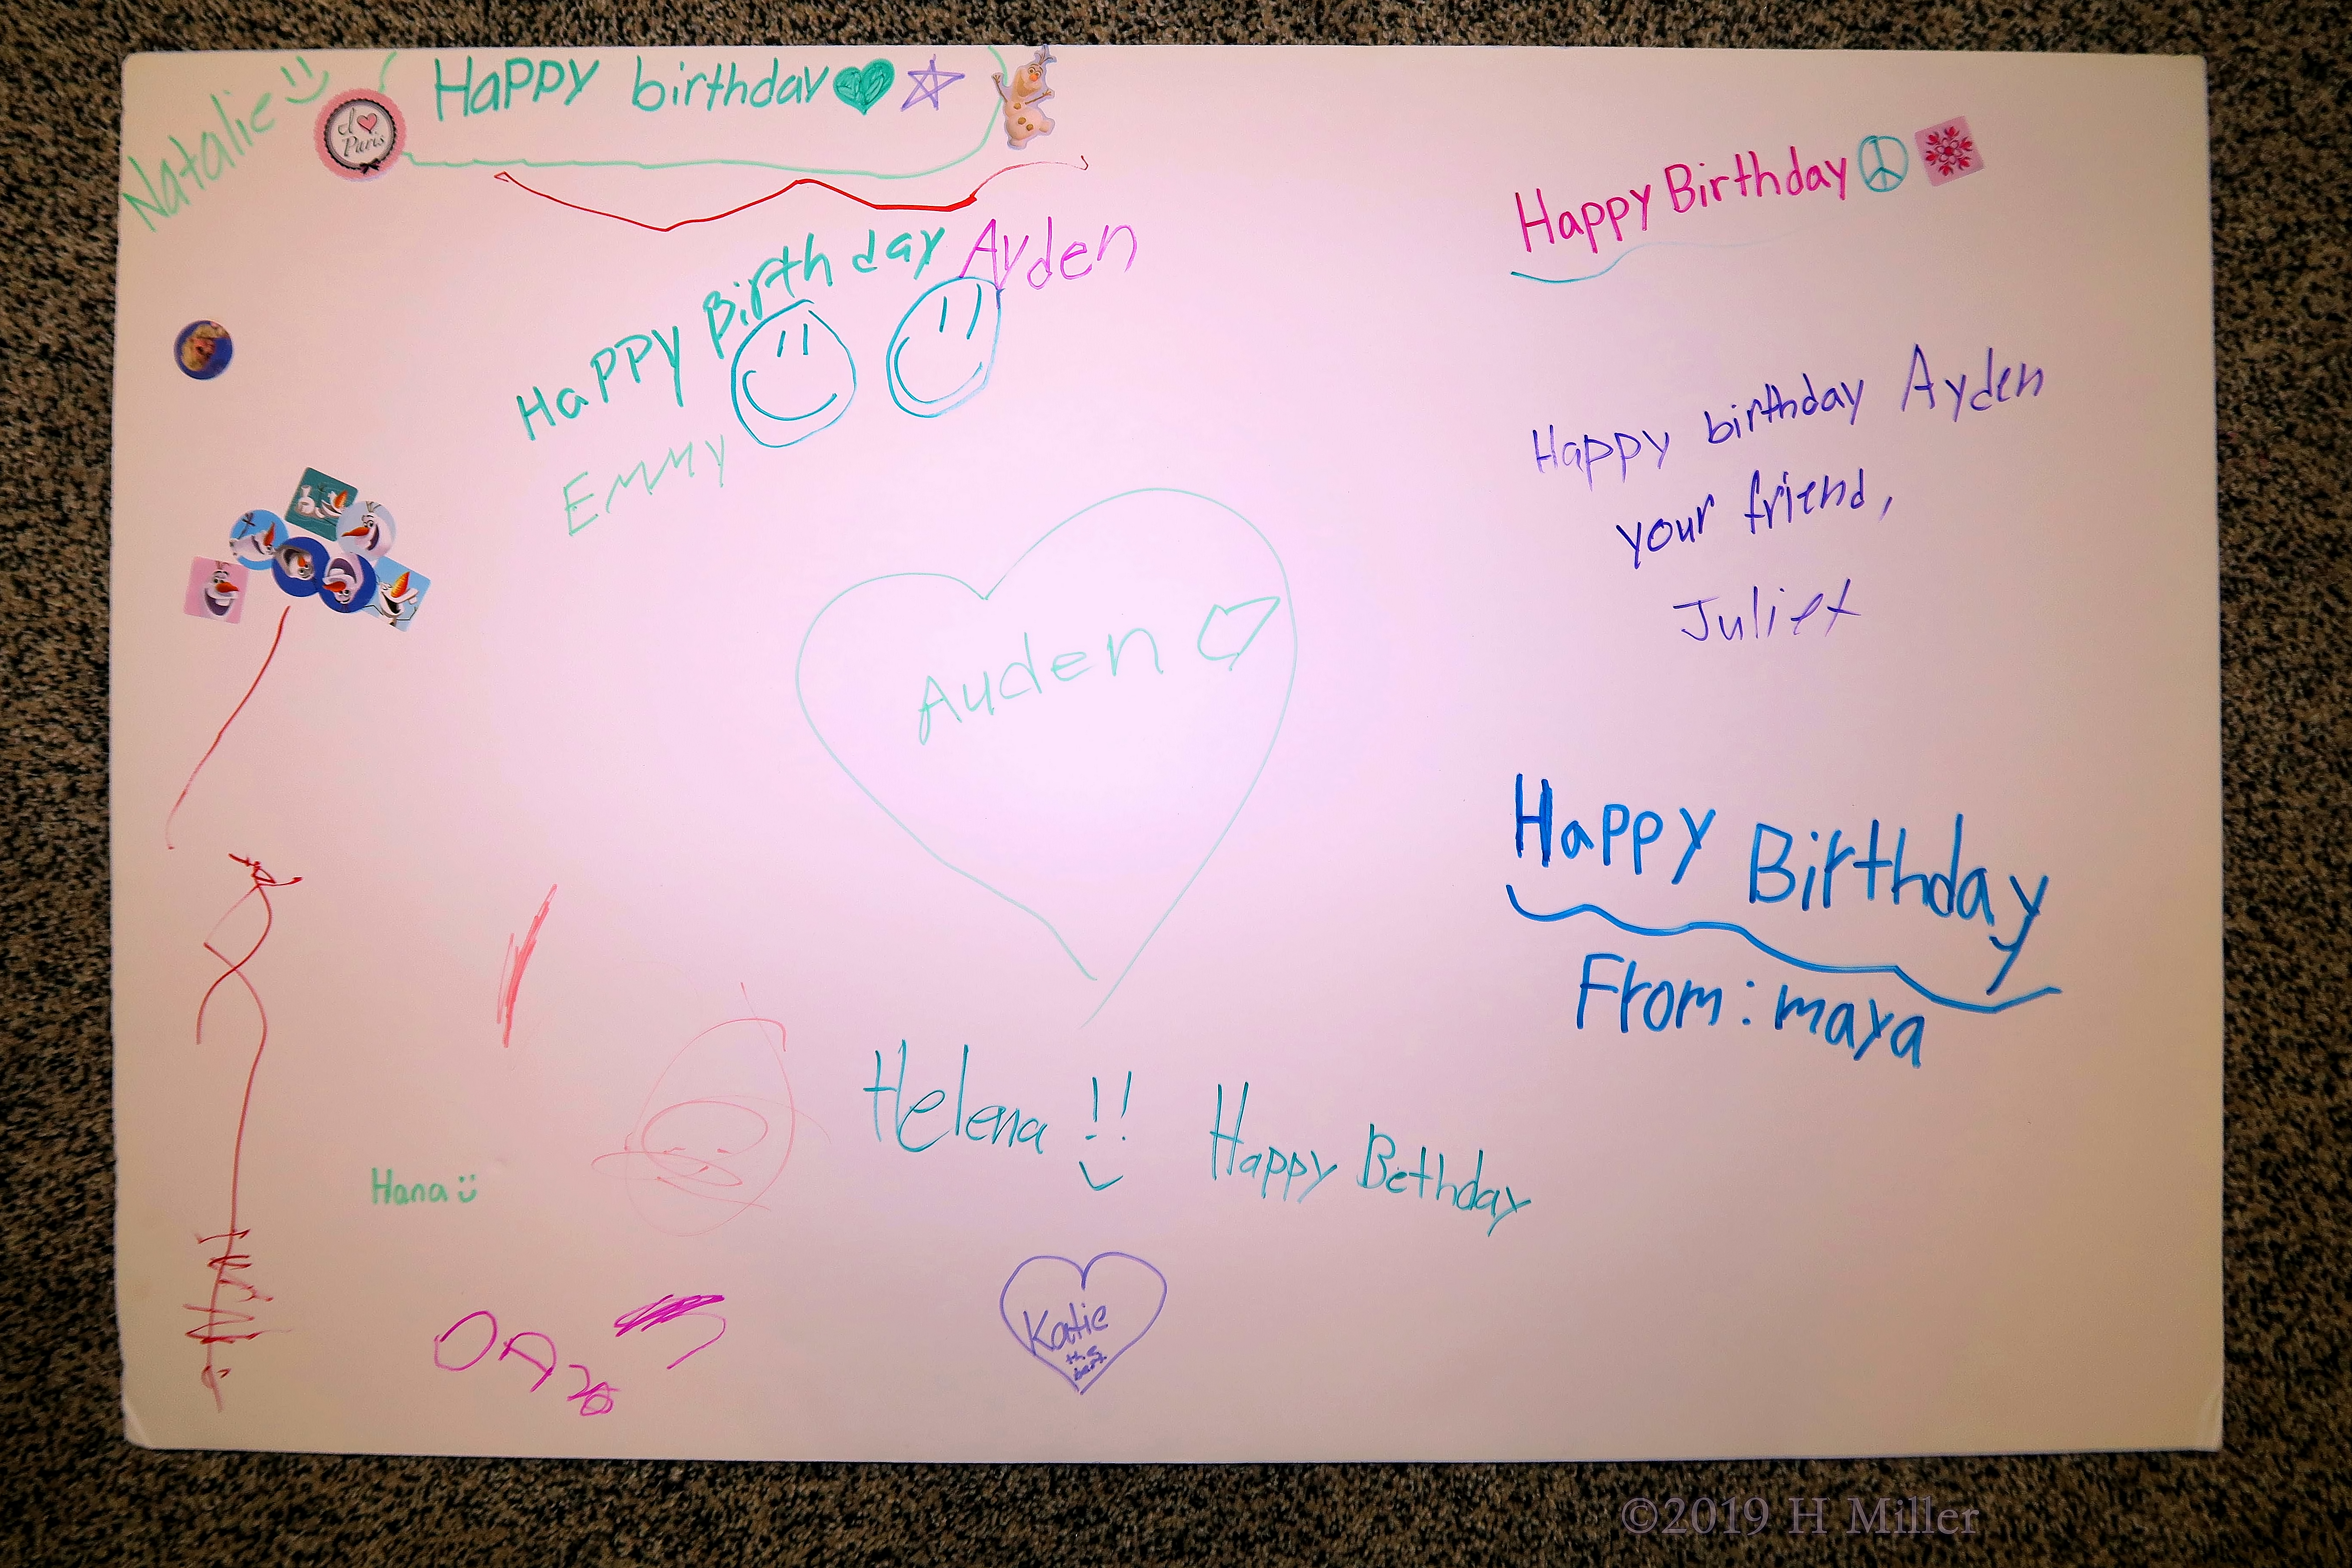 Natalie
I ♥ Paris
Happy birthday
Happy Birthday
Happy Birthday Ayden
Emmy
Happy birthday Ayden
your friend,
Juliet
Ayden
Happy Birthday
From: maya
Helena !!
Happy Bethday
Hana
Katie
the
best
©2019 H Miller